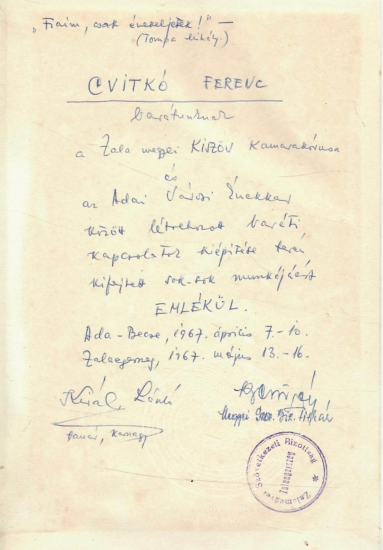 „Fiaim, csak énekeljetek!" —
(Tompa Mihály.)
CVITKÓ FERENC
barátunknak
a Zala megyei KISZÖV Kamarakórusa
és
az Adai Városi Énekkar
között létrehozott baráti
kapcsolatok kiépítése terén
kifejtett sok-sok munkájáért
EMLÉKÜL.
Ada-Becse, 1967. április 7.-10.
Zalaegerszeg, 1967. május 13.-16.
Király László
tanár, karnagy
Megyei Szöv. Biz. titkár
Zalamegyei Szövetkezeti Bizottság
Zalaegerszeg